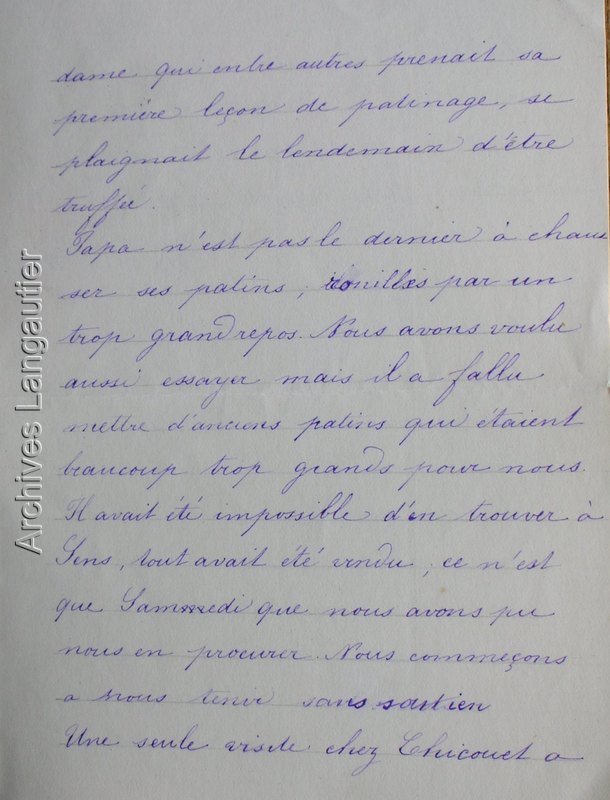 dame qui entre autres prenait sa
première leçon de patinage, se
plaignait le lendemain d'être
truffée.
Papa n'est pas le dernier à chaus
ser ses patins, rouillés par un
trop grand repos. Nous avons voulu
aussi essayer mais il a fallu
mettre d'anciens patins qui étaient
beaucoup trop grands pour nous.
Il avait été impossible d'en trouver à
Sens, tout avait été vendu, ce n'est
que Sammedi que nous avons pu
nous en procurer. Nous commeçons
a nous tenir sans soutien
Une seule visite chez Thicouet a
Archives Langautier